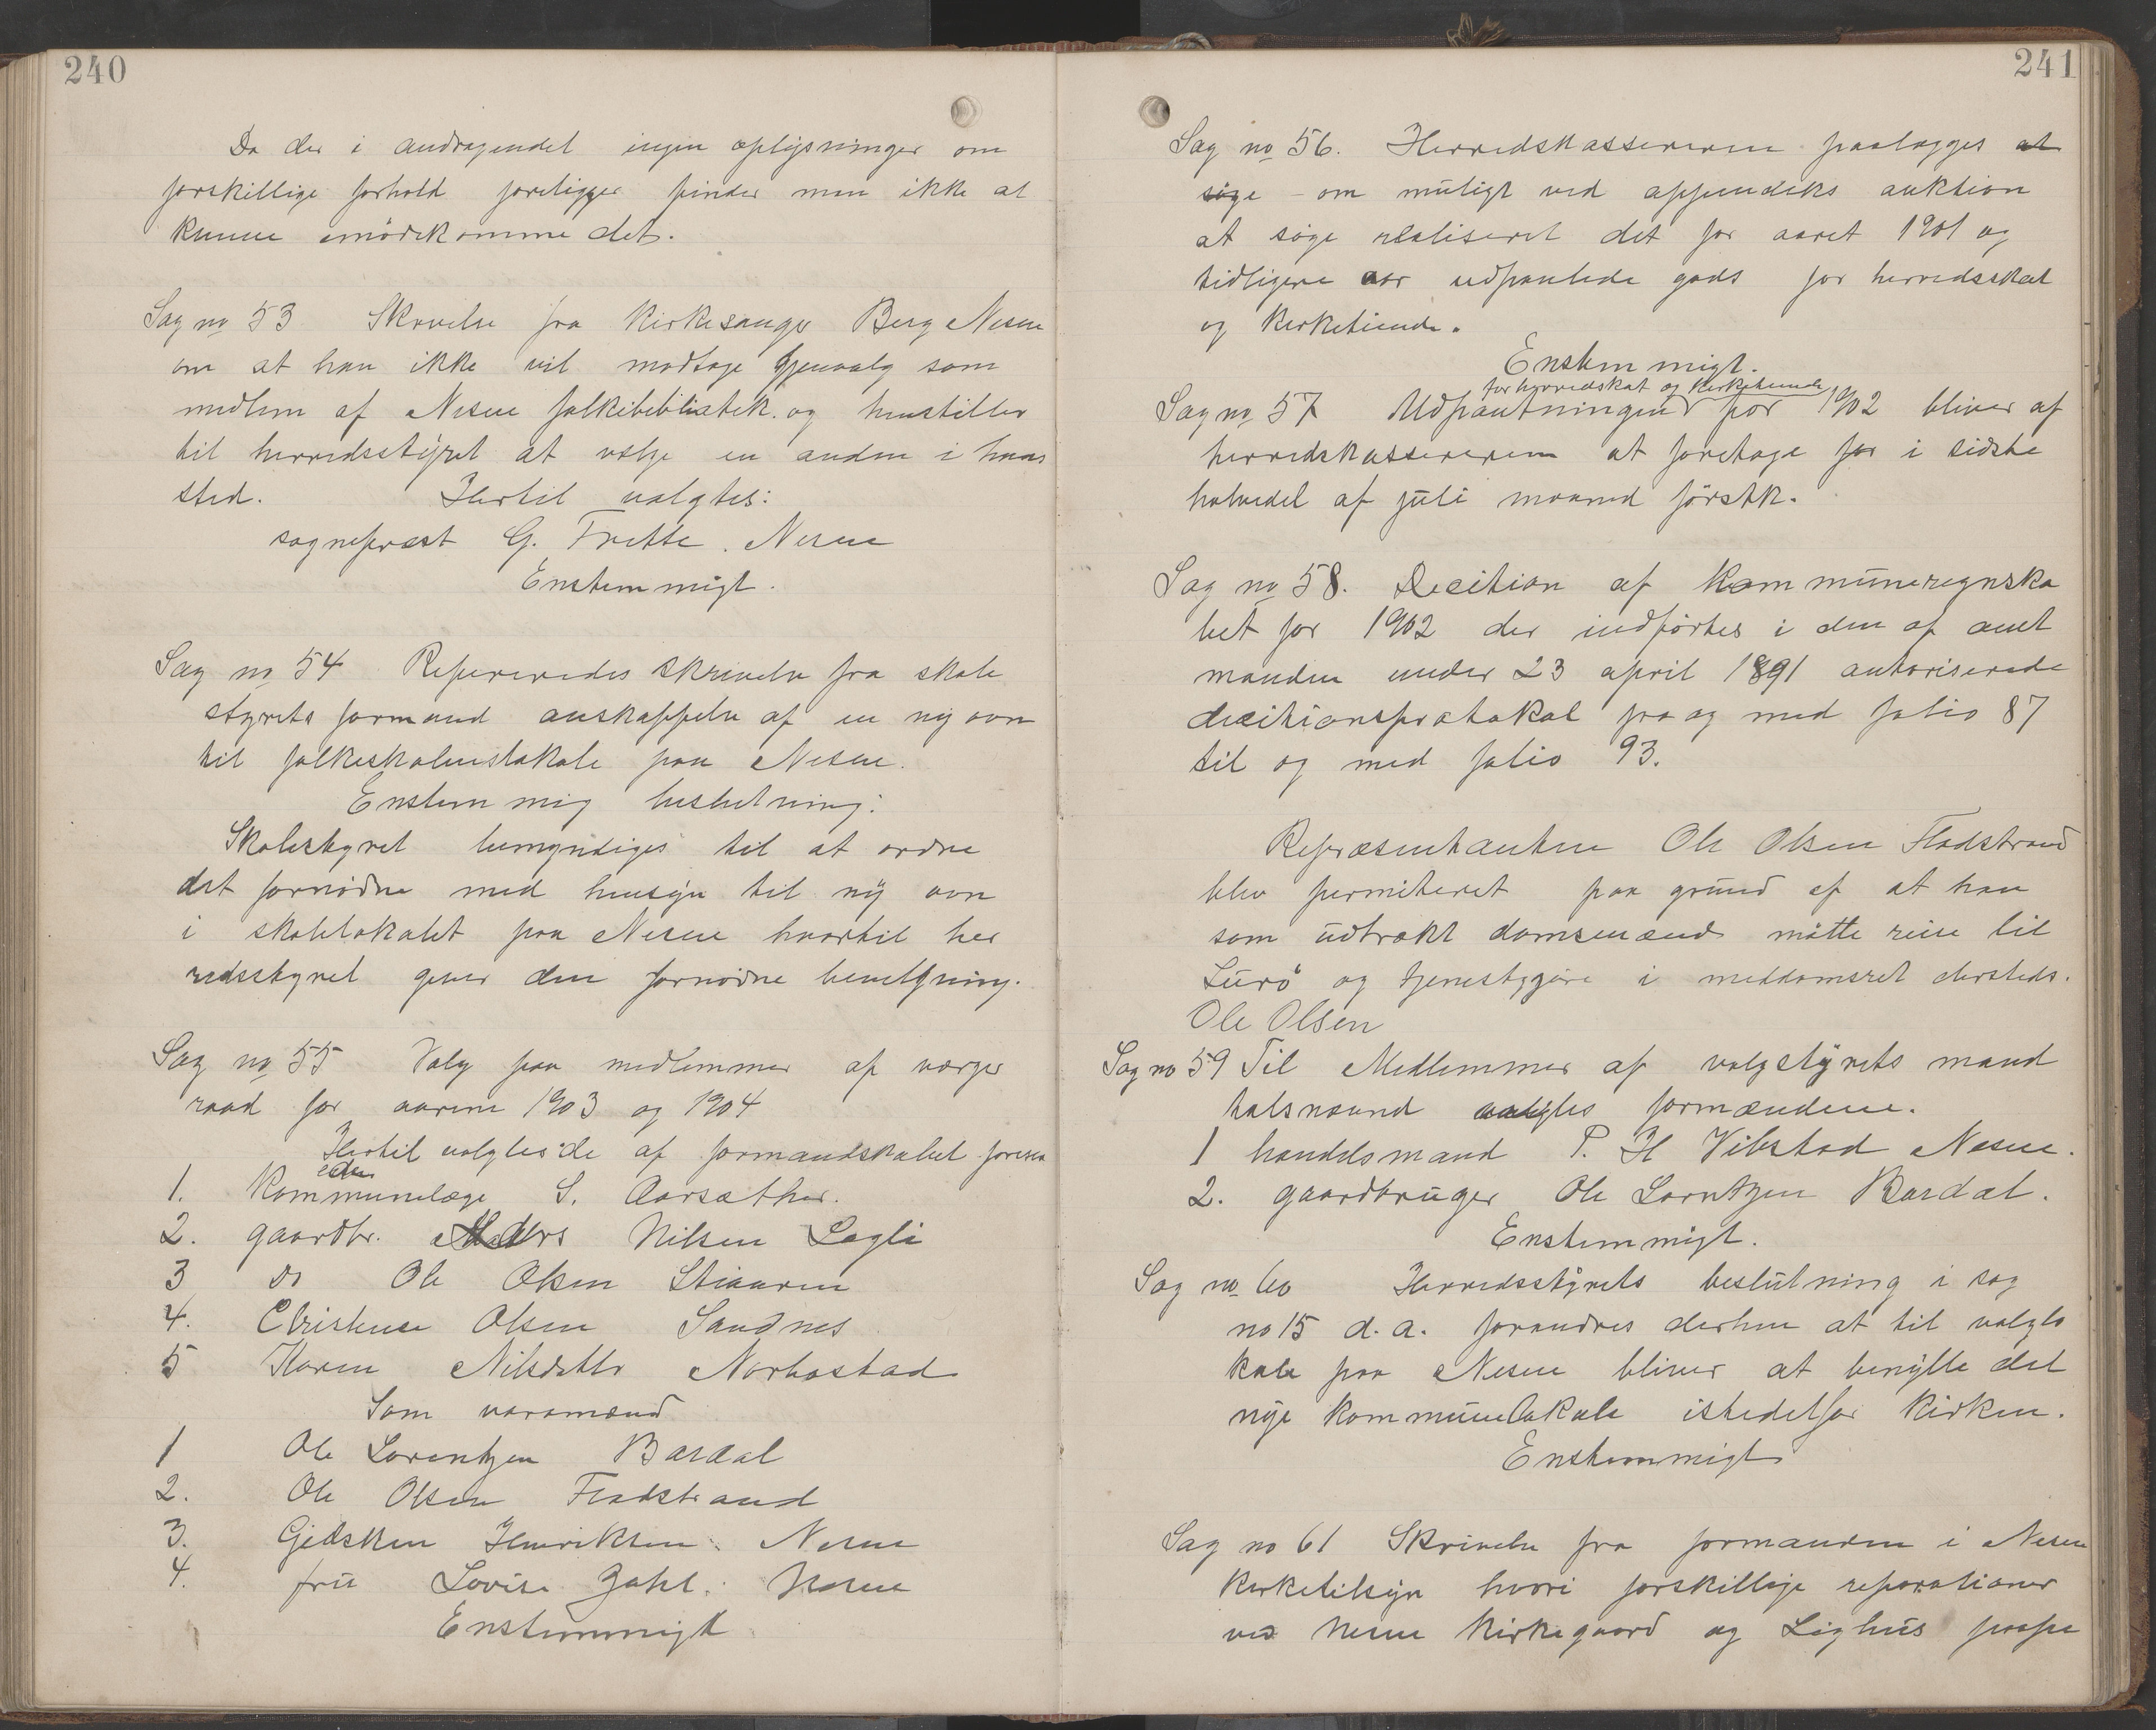 240
Da der i andragendet ingen oplysninger om
forskillige forhold foreligger finder man ikke at
kunne imödekomme det.
Sag no 53 Skrivelse fra Kirkesanger Berg Nesne
om at han ikke vil modtage gjenvalg som
medlem af Nesne folkebibliatek. og henstiller
til herredsstyret at vælge en anden i hans
sted. Hertil valgtes:
sogneprest G. Trette. Nesne
Enstemmigt.
Sag no 54 Refereredes skrivelse fra skole
styrets formand anskaffelse af en ny ovn
til folkeskolenslokale paa Nesne.
Enstemmig beslutning:
Skolestyret bemyndiges til at ordne
det fornödne med hensyn til ny ovn
i skolelokalet paa Nesne hvortil her
redsstyret giver den fornödne bevilgning.
Sag no 55 Valg paa medlemmer af værge
raad for aarene 1903 og 1904
Hertil valgtes de af formandskabet foresa
ede
1. Kommunelæge S. Aarsæther.
2. gaardbr. Anders Nilsen Løgli
3 do Ole Olsen Stivaren
4. Christense Olsen Sandnes
5 Karen Nilsdatter Norbostad
Som varamænd
1 Ole Lorentzen Bardal
2. Ole Olsen Fladstrand
3. Gjedsken Henriksen. Nesne
4. fru Lovise Zahl. Nesne
Enstemmigt
241
Sag no 56. Herredskassereren paalægges at
søge - om muligt ved appendiks auktion
at søge realiseret det for aaret 1901 og
tidligere aar udpantede gods for herredsskat
og kirketiende.
Enstemmigt.
for herredskat og kirketiende
Sag no 57 Udpantningen for 1902 bliver af
herredskassereren at foretage for i sidste
halvedel af juli maaned förstk.
Sag no 58. Decition af Kommuneregnska
bet for 1902 der indförtes i den af amt
manden under 23 april 1891 autoriserede
decitionsprotokal fra og med folio 87
til og med folio 93.
Repræsentanten Ole Olsen Fladstrand
blev permiteret paa grund af at han
som udtrukt domsmænd måtte reise til
Lurö og tjenestggöre i meddomsret dersteds.
Ole Olsen
Sag no 59 Til Medlemmer af valgstyrets mand
talsnævnd valgtes formændene.
1 handelsmand P. H Vibstad Nesne.
2. gaardbruger Ole Lorntzen Bardal.
Enstemmigt.
Sag no 60 Herredsstyrets beslutning i sag
no 15 d.a. forandres derhen at til valglo
kale paa Nesne bliver at benytte det
nye kommunelokale istedetfor Kirken.
Enstemmigt
Sag no 61 Skrivelse fra formanden i Nesne
Kirketilsyn hvori forskillige reparationer
ved Nesne Kirkegaard og Lighus paape